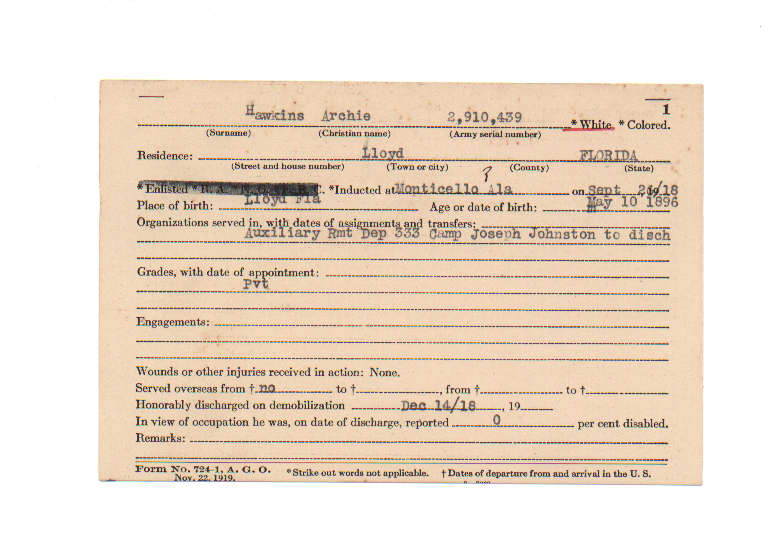 1
Hawkins Archie 2,910,439 * White. * Colored.
(Surname) (Christian name) (Army serial number)
Residence: Lloyd FLORIDA
(Street and house number) (Town or city) (County) (State)
?
* Enlisted * R. A. C. *Inducted at Monticello Ala on Sept 2 /18
Place of birth: Lloyd Fla Age or date of birth: May 10 1896
Organizations served in, with dates of assignments and transfers:
Auxiliary Rmt Dep 333 Camp Joseph Johnston to disch
Grades, with date of appointment:
Pvt
Engagements:
Wounds or other injuries received in action: None.
Served overseas from † no to †, from † to †
Honorably discharged on demobilization Dec 14/18, 19
In view of occupation he was, on date of discharge, reported 0 per cent disabled.
Remarks:
Form No. 724-1, A. G. O. *Strike out words not applicable. † Dates of departure from and arrival in the U. S.
Nov. 22, 1919.